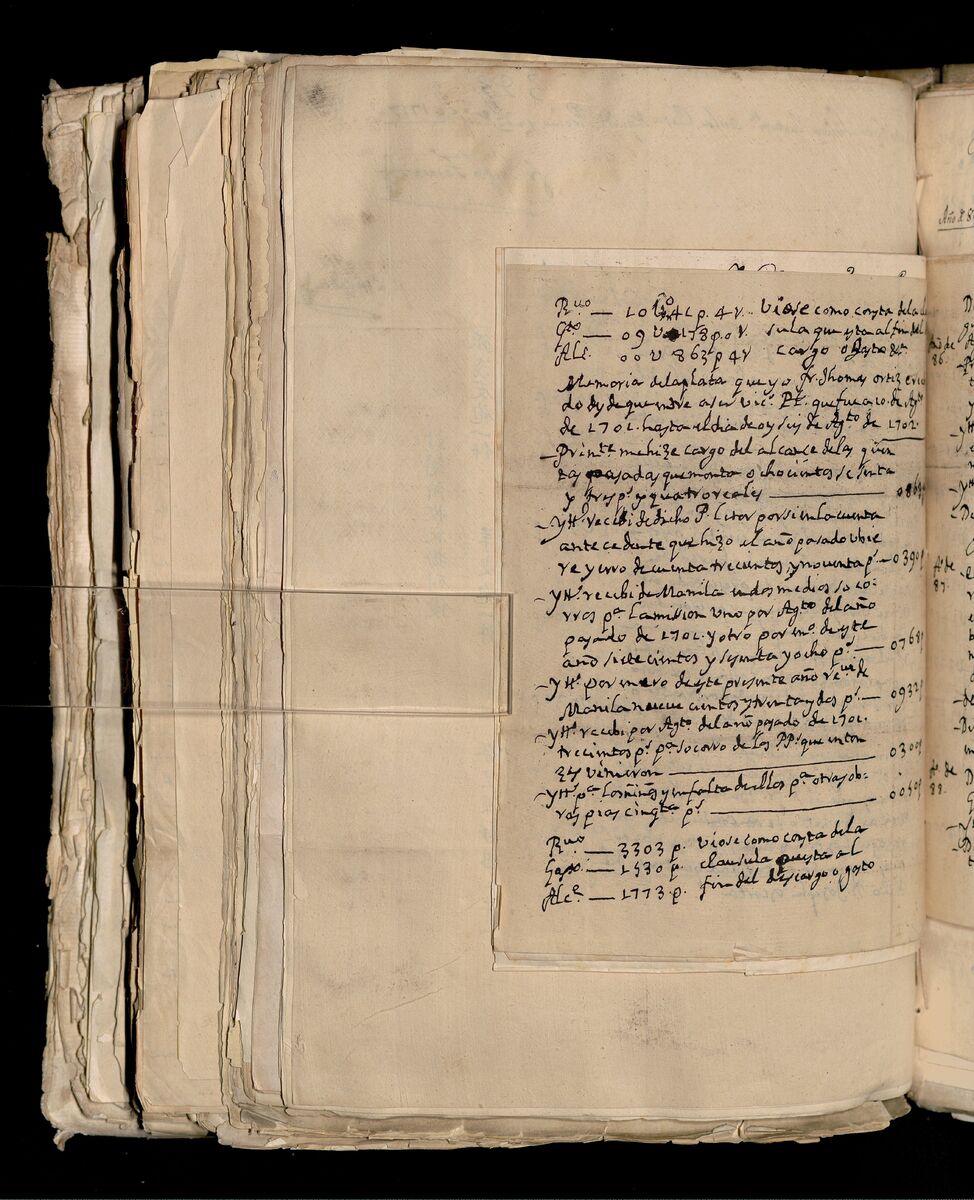 Rvo — 10 U 041 p. 4 r. Viose como consta dela
Gto — 09 U 178 p. 0 r. sula que esta al fin del
Alc. 00 U 863 p 4 r cargo o gasto &a
Memoria dela plata que yo fr. Thomas ortiz e reci
do desde que entre a ser vic. Pl. que fue a 10. de Agto
de 1701. hasta el dia de oy seis de Agto de 1702.
Prim.te me hize cargo del alcance delas quen
tas pasadas que monta ochocientos sesenta
y tres ps. y quatro reales — 0863
Ytt. recibi de dicho P. Letor por si en la cuenta
antecedente que hizo el año pasado ubie
re yerro de cuenta trecientos y noventa ps. — 0390
Ytt. recibi de Manila en dos medios soco-
rros pa. la mission uno por Agto del año
pasado de 1701. y otro por eno. de este
año sietecientos y sesenta y ocho ps. — 0768
Ytt. por enero de este presente año revi. de
Manila nueve cientos y treinta y dos ps. — 0932
Ytt. recibi por Agto. del año pasado de 1701.
trecientos ps. pa. socorro de los PPs. que enton
zes vinieron — 0300
Ytt. pa. los niños y en falta de ellos pa. otras ob-
ras pias cinqta. ps. — 0050
Rvo. — 3303 p. viose como consta dela
Gasto. — 1530 p. clausula puesta al
Alce. — 1773 p. fin del descargo o gasto
Año de 8
86.
87.
88.